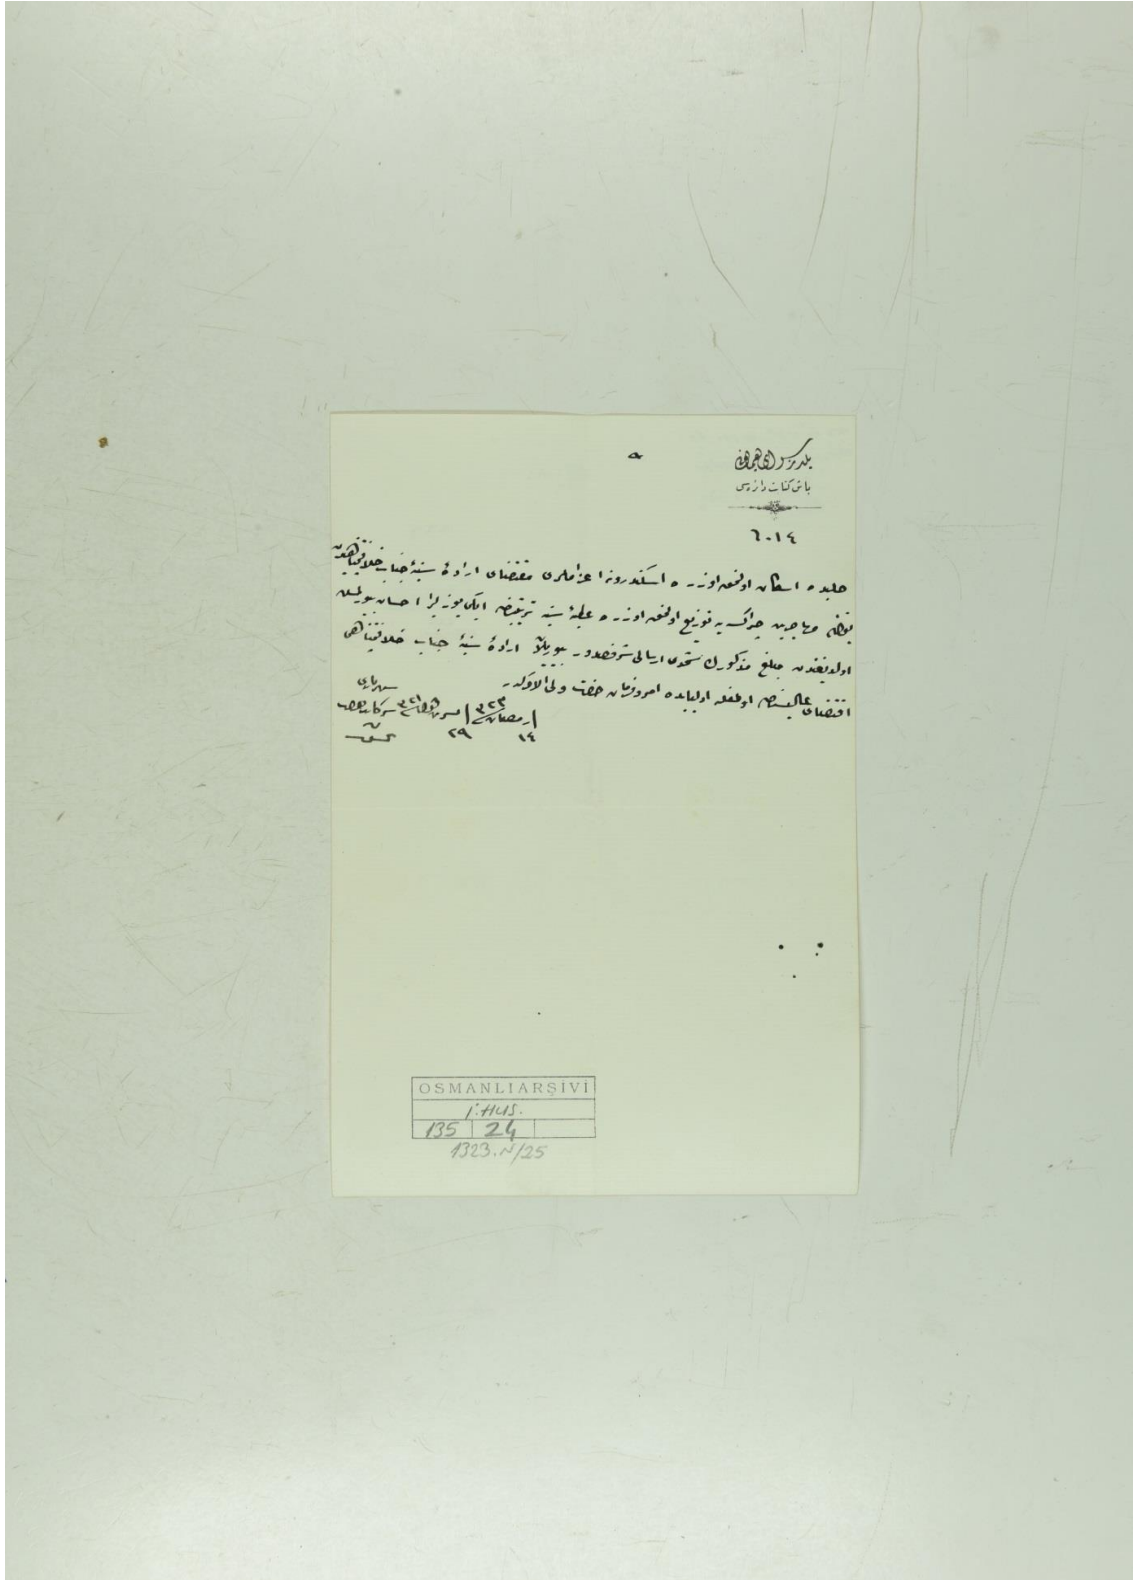 يلديز سراى همايونى
باش كتابت دائره سى
٦٠١٤
حلبده اسكان اولنمق اوزره اسكندرونه اعزاملرى مقتضاى اراده سنيۀ جناب خلافتپناهيدن
بولنان مهاجرين چراكسه يه توزيع اولنمق اوزره عطيۀ سنيه ترتيبندن ايكى يوز ليرا احسان بيورلمش
اولديغندن مبلغ مذكورك ارسالى شرفصدور بيوريلان ارادۀ سنيۀ جناب خلافتپناهى
اقتضاى عاليسندن اولمغله اولبابده امر و فرمان حضرت ولى الامركدر
١٤ رمضان ٣٢٣ ٢٩ تشرين اول ٣٢١ سركاتب حضرت شهريارى
تحسين
OSMANLI ARŞİVİ
İ.HUS.
135 24
1323.N/25